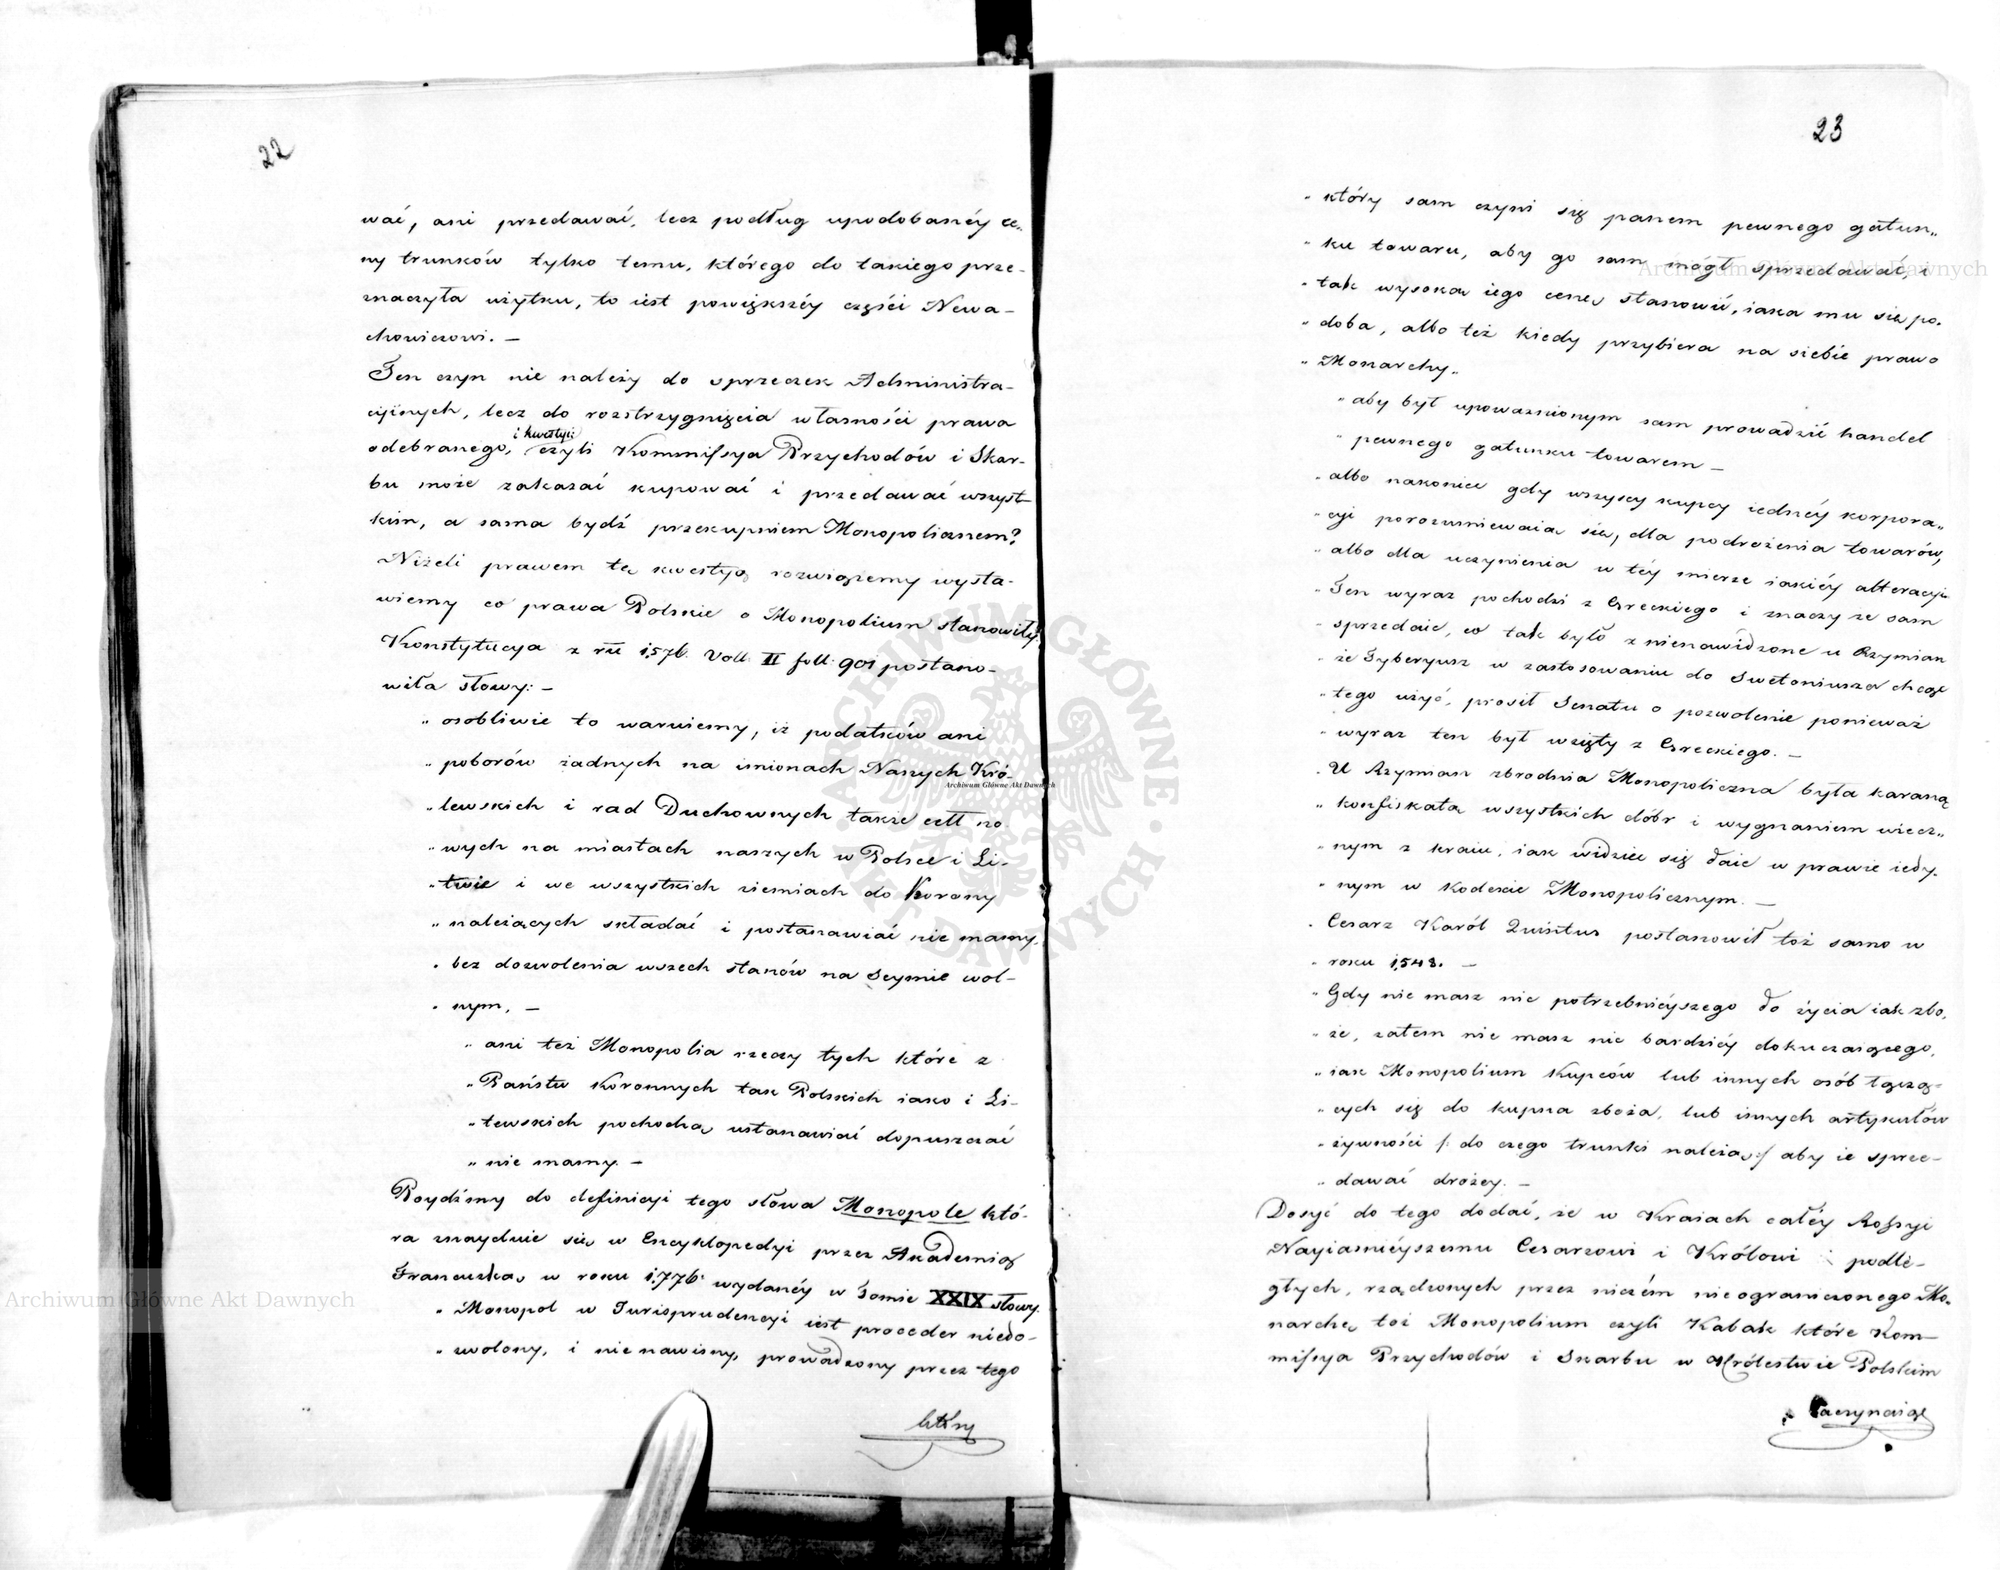 22
wać, ani przedawać, lecz podług upodobanéy ce„
ny trunków tylko temu, którego do takiego prze-
znaczyła użytku, to iest powiększéy części Newa-
chowiczowi. –
Ten czyn nie należy do sprzeczek Administra-
cyinych, lecz do rozstrzygnięcia własności prawa
odebranego, i kwestyi: czyli Kommissya Przychodów i Skar-
bu może zakazać kupować i przedawać wszyst
kim, a sama bydź przekupniem Monopolicznem?
Niżeli prawem tę kwestyą rozwiążemy wysta-
wiemy co prawa Polskie o Monopolium stanowiły,
Konstytucya z rũ 1576. Voll: II foll: 901 postano-
wiła słowy: –
„ osobliwie to waruiemy, iż podatków ani
„ poborów żadnych na imionach Naszych Kró-
„ lewskich i rad Duchownych także cełł no
„ wych na miastach naszych w Polsce i Li-
„ twie i we wszystkich ziemiach do Korony
„ należących składać i postanawiać nie mamy,
„ bez dozwolenia wszech stanów na Seymie wol-
„ nym, –
„ ani też Monopolia rzeczy tych które z
„ Państw Koronnych tak Polskich iako i Li-
„ tewskich pochodzą ustanawiać dopuszczać
„ nie mamy. –
Poydźmy do definicyi tego słowa Monopole któ-
ra znayduie się w Encyklopedyi przez Akademią
Francuską w roku 1776 wydanéy w Tomie XXIX słowy.
„ Monopol w Jurisprudencyi iest proceder niedo-
„ zwolony, i nienawisny, prowadzony przez tego
który
23
„ który sam czyni się panem pewnego gatun„
„ ku towaru, aby go sam mógł sprzedawać, i
„ tak wysoką iego cenę stanowić, iaka mu się po„
„ doba, albo też kiedy przybiera na siebie prawo
„ Monarchy„
„ aby był upoważnionym sam prowadzić handel
„ pewnego gatunku towarem –
„ albo nakoniec gdy wszyscy kupcy iednéy korpora„
„ cyi porozumiewaią się, dla podrożenia towarów,
„ albo dla uczynienia w téy mierze iakiéy alteracyi
„ Ten wyraz pochodzi z Greckiego i znaczy że sam
„ sprzedaie, co tak było znienawidzone u Rzymian
„ że Tyberyusz w zastosowaniu do Swetoniusza chcąc
„ tego użyć, prosił Senatu o pozwolenie ponieważ
„ wyraz ten był wzięty z Greckiego. –
„ U Rzymian zbrodnia Monopoliczna była karaną
„ konfiskatą wszystkich dóbr i wygnaniem wiecz„
„ nym z kraiu, iak widzieć się daie w prawie iedy„
„ nym w kodexie Monopolicznym. –
„ Cesarz Karól Quintus postanowił toż samo w
„ roku 1548. –
„ Gdy nie masz nic potrzebnieyszego do życia iak zbo„
„ że, zatem nie masz nic bardziéy dokuczaiącego,
„ iak Monopolium Kupców lub innych osób łączą-
„ cych się do kupna zboża, lub innych artykułów
„ żywności /: do czego trunki należą :/ aby ie sprze-
„ dawać drożey. –
Dosyć do tego dodać, że w Kraiach całéy Rossyi
Nayiaśnieyszemu Cesarzowi i Królowi podle-
głych, rządzonych przez niczém nieograniczonego Mo„
narchę toż Monopolium czyli Kabak które Kom-
missya Przychodów i Skarbu w Królestwie Polskim
zaczynaiąc
ARCHIWUM GŁÓWNE AKT DAWNYCH
Archiwum Główne Akt Dawnych
Archiwum Główne Akt Dawnych
Archiwum Główne Akt Dawnych